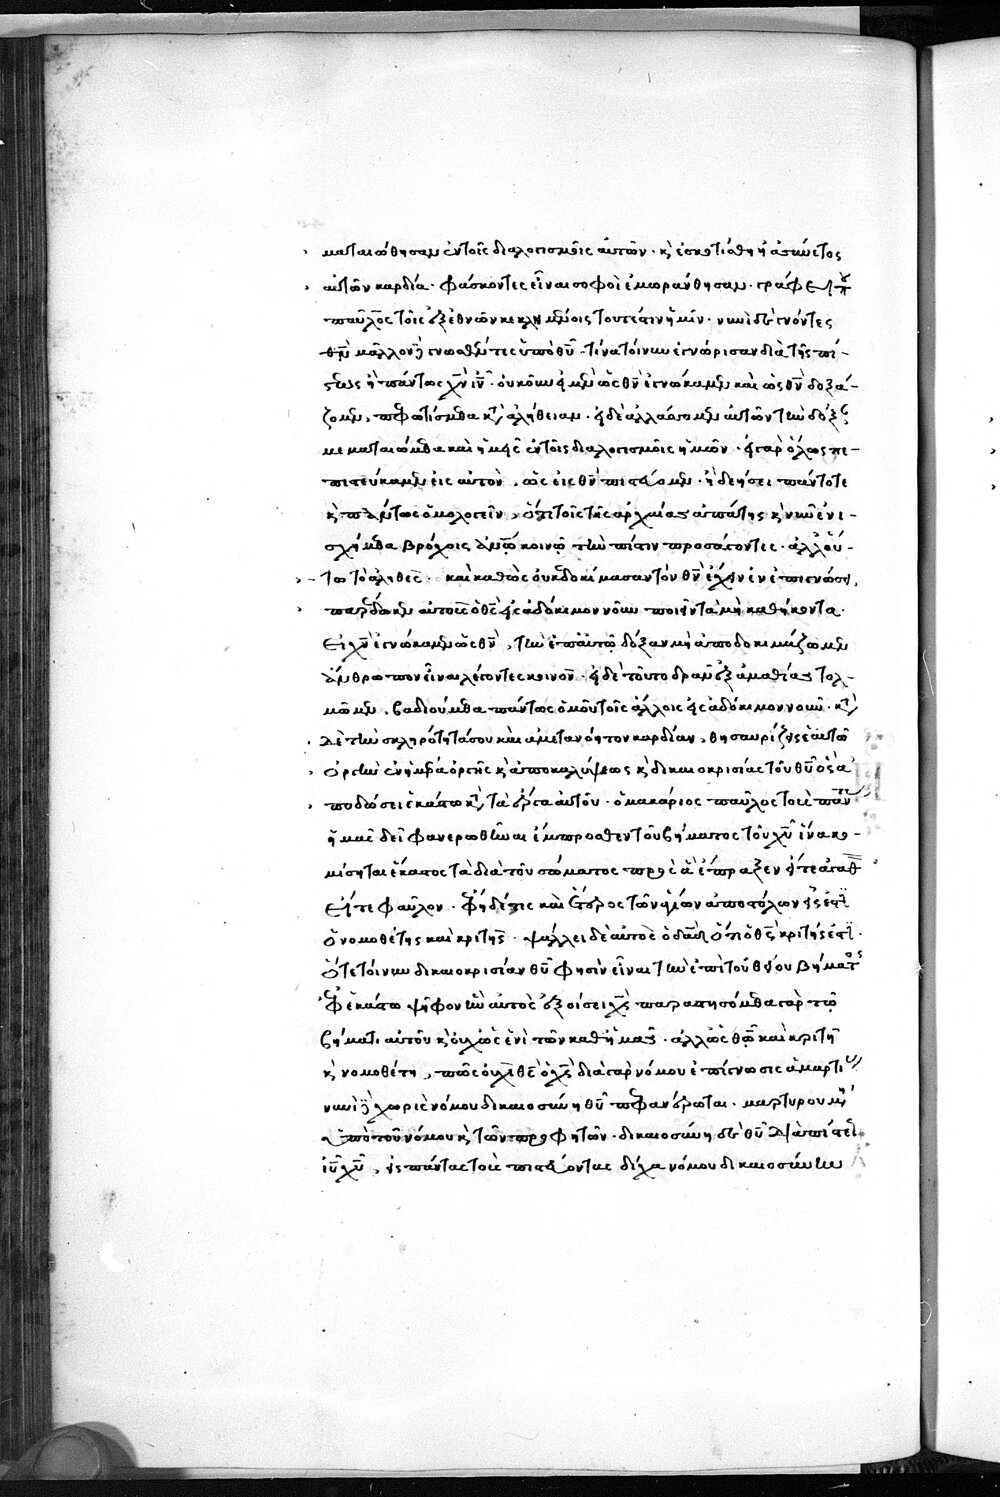 ματαιώθησαν ἐν τοῖς διαλογισμοῖς αὐτῶν· κ ἐσκοτίσθη ἡ ἀσύνετος
αὐτῶν καρδία· φάσκοντες εἶναι σοφοὶ ἐμωράνθησαν· γράφει
παῦλος τοῖς ἐξ ἐθνῶν κεκλημένοις τουτέστιν ἡμῖν· νυνὶ δὲ γνόντες
θν μᾶλλον δὲ γνωσθέντες ὑπὸ θυ· τίνα τοίνυν ἐγνώρισαν διὰ τῆς πί-
στεως ἢ πάντως χν ιν· οὐκοῦν εἰ μὲν ὡς θν ἐγνώκαμεν καὶ ὡς θν δοξά-
ζομεν, πεφωτίσμεθα κατ ἀλήθειαν· εἰ δὲ ἀλλάσσομεν αὐτῶν τὴν δόξ
μεματαιώμεθα καὶ ἡμεῖς ἐν τοῖς διαλογισμοῖς ἡμῶν· εἰ γὰρ ὅλως πε-
πιστεύκαμεν εἰς αὐτὸν, ὡς εἰς θν πιστεύομεν· ἢ δεήσει πάντοτε
κ πάντως ὁμολογεῖν, ὅτι τοῖς τῆς ἀρχαίας ἀπάτης κ νῦν ἐνι-
σχήμεθα βρόχοις ἀνω κοινῷ τὴν πίστιν προσάγοντες· ἀλλ οὖ-
το τὸ ἀληθές· καὶ καθὼς οὐκ ἐδοκίμασαν τὸν θν ἔχειν ἐν ἐπιγνώσει,
παρέδωκεν αὐτοὺς ὁ θς εἰς ἀδόκιμον νοῦν ποιεῖν τὰ μὴ καθήκοντα·
Εἰ χν ἐγνώκαμεν ὡς θν, τὴν ἐπ αὐτῷ δόξαν μὴ ἀποδοκιμάζωμεν
ἄνθρωπον εἶναι λέγοντες κοινόν· εἰ δὲ τοῦτο δρᾶν ἐξ ἀμαθίας τολ-
μῶμεν, βαδιούμεθα πάντως ὁμοῦ τοῖς ἄλλοις εἰς ἀδόκιμον νοῦν· κατὰ
δὲ τὴν σκληρότητά σου καὶ ἀμετανόητον καρδίαν, θησαυρίζεις ἑαυτῷ
ὀργὴν ἐν ἡμέρα ὀργῆς κ ἀποκαλύψεως κ δικαιοκρισίας τοῦ θυ ὃς ἀ
ποδώσει ἑκάστω κατὰ τὰ ἔργα αὐτοῦ· ὁ μακάριος παῦλος τοὺς πάντ
ἡμᾶς δεῖ φανερωθῆναι ἔμπροσθεν τοῦ βήματος τοῦ χυ ἵνα κο-
μίσηται ἕκαστος τὰ διὰ τοῦ σώματος πρὸς ἃ ἔπραξεν εἴτε ἀγαθ
εἴτε φαῦλον· φησὶ δέ τις καὶ ἕτερος τῶν ἁγίων ἀποστόλων εἷς ἐστ
ὁ νομοθέτης καὶ κριτής· ψάλλει δὲ αὐτὸς ὁ δαδ ὅτι ὁ θς κριτής ἐστ·
Ὅτε τοίνυν δικαιοκρισίαν θυ φησὶν εἶναι τὴν ἐπὶ τοῦ θείου βήματος
ἐφ ἑκάστω ψῆφον ἣν αὐτὸς ἐξοίσει χς παραστησόμεθα γὰρ τῷ
βήματι αὐτοῦ κ οὐχ ὡς ἑνὶ τῶν καθ ἡμᾶς· ἀλλ ὡς θω καὶ κριτῆ
κ νομοθέτη, πῶς οὐχὶ θς ὁ χς διὰ γὰρ νόμου ἐπίγνωσις ἁμαρτι
νυνὶ δὲ χωρὶς νόμου δικαιοσύνη θυ πεφανέρωται· μαρτυρουμένη
ὑπὸ τοῦ νόμου κ τῶν προφητῶν· δικαιοσύνη δὲ θυ διὰ πίστεως
ιυ χυ, εἰς πάντας τοὺς πιστεύοντας δίχα νόμου δικαιοσύνην